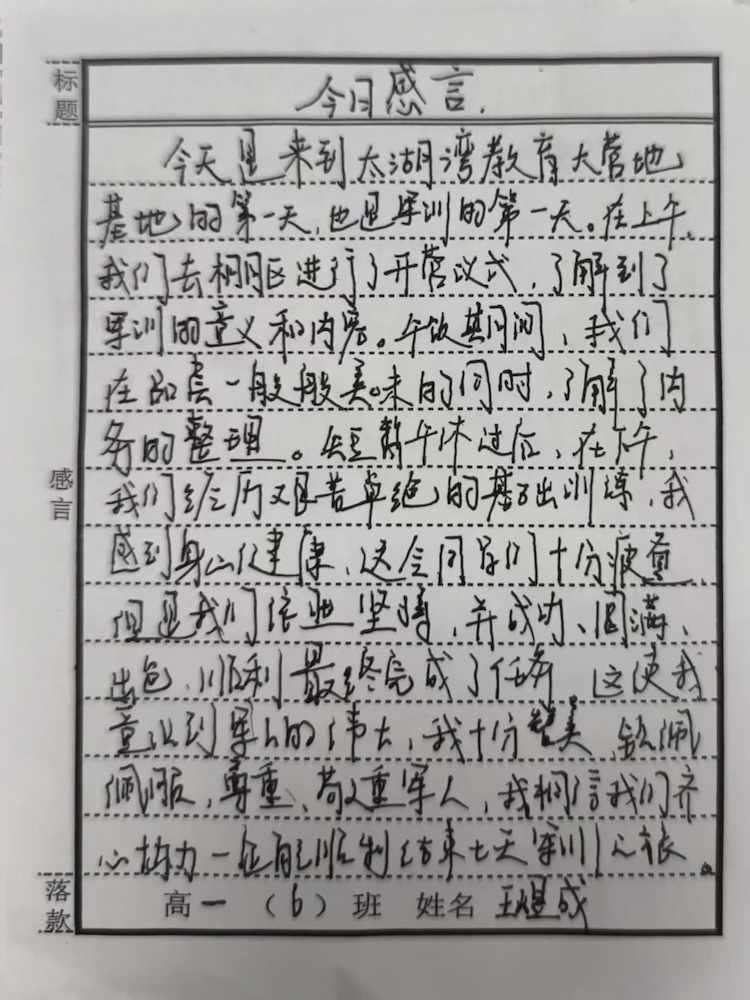 标题
今日感言.
今天是来到太湖湾教育大营地
基地的第一天,也是军训的第一天。在上午,
我们去相月区进行了开营仪式,了解到了
军训的意义和内容。午饭其间间,我们
在品尝一般般美味的同时,了解了内
务的整理。短暂午休过后,在下午,
我们经历艰苦卓绝的基础训练,我
感到身心健康,这令同学们十分疲惫,
但是我们依然坚持,并成功、圆满、
出色、顺利最终完成了任务 这使我
意识到军人的伟大,我十分赞美,钦佩
佩服,尊重、敬重军人,我相信我们齐
心协力一定能顺利结束七天军训
感言
落款
高一(6)班 姓名 王煜成